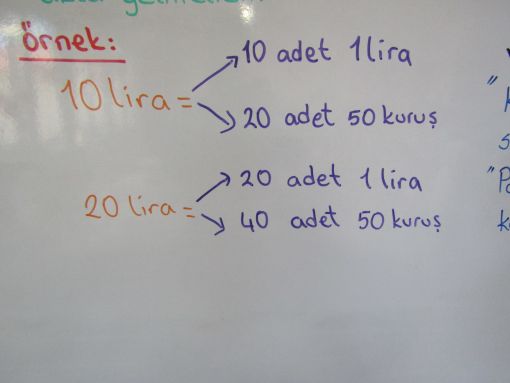 örnek:
10 lira = 10 adet 1 lira
20 adet 50 kuruş
20 lira = 20 adet 1 lira
40 adet 50 kuruş